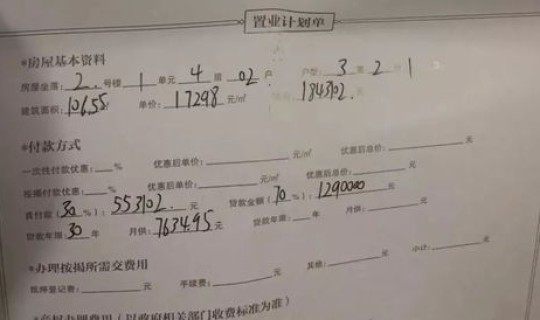 置业计划单
*房屋基本资料
房屋坐落: 2 号楼 1 单元 4 层 02 户 户型: 3 室 2 1
建筑面积: 106.55 单价: 17298 元/㎡ 1843102.
*付款方式
一次性付款优惠: % 优惠后单价: 元/㎡ 优惠后总价: 元
按揭付款优惠: % 优惠后单价: 元/㎡ 优惠后总价: 元
首付款(30 %): 553102. 元 贷款金额(70 %): 1290000 元
贷款年限: 30 年 月供: 7634.95 元 贷款年限: 年 月供: 元
*办理按揭所需交费用
抵押登记费: 元 手续费: 元 其他: 元 小计: 元
办理费用(以政府相关部门收费标准为准)